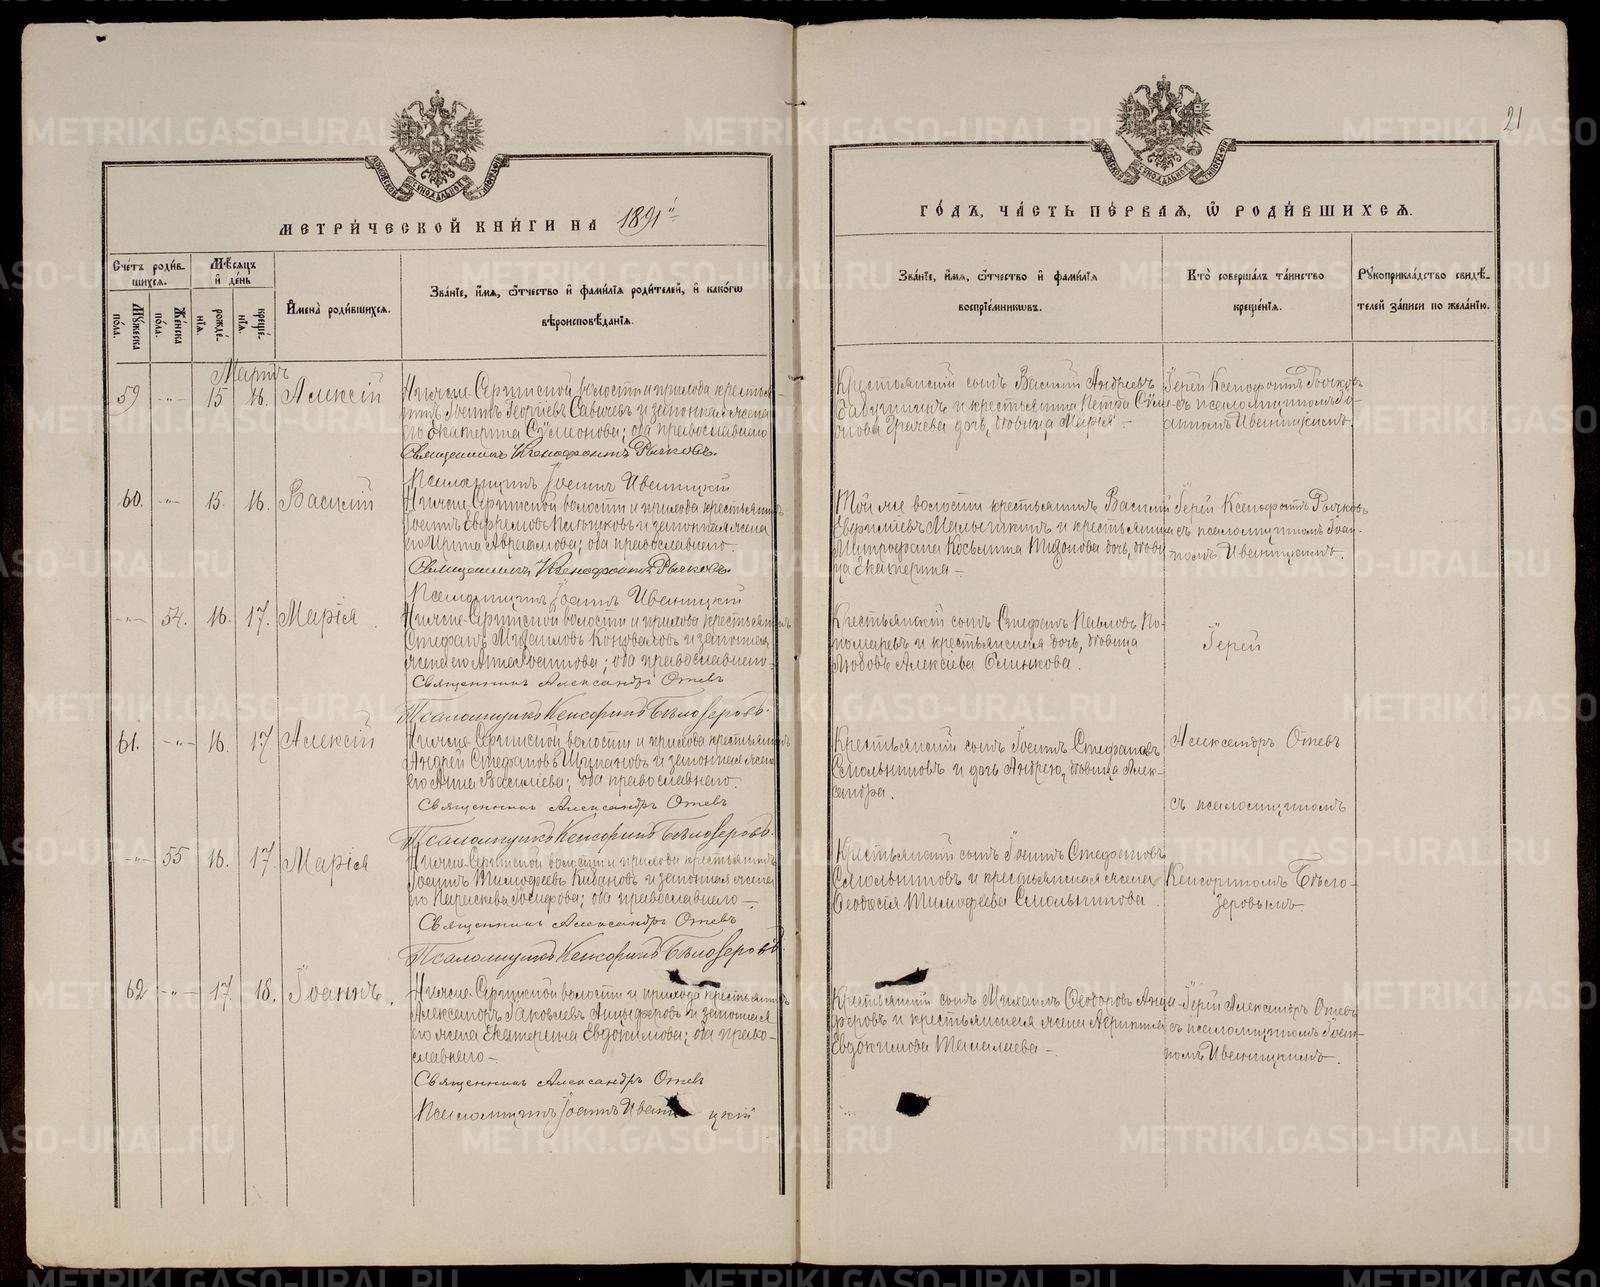 21
МЕТРИ́ЧЕСКОЙ КНИ́ГИ НА 1891й
ГО́ДЪ, ЧА́СТЬ ПЕ́РВАЯ, Ѡ РОДИ́ВШИХСЯ.
Сче́тъ роди́в-
шихся.
Мѣ́сяцъ
и҆ де́нь
Му́жеска по́ла.
Же́нска по́ла.
рожде́-
нїя.
креще́-
нїя.
И҆мена̀ роди́вшихся.
Зва́нїе, и҆́мя, ѻ҆́тчество и҆ фами́лїя роди́телей, и҆ како́гѡ
вѣроисповѣ́данїя.
Зва́нїе, и҆́мя, ѻ҆́тчество и҆ фами́лїя
воспрїе́мникѡвъ.
Кто̀ соверша́лъ та́инство
креще́нїя.
Рꙋкоприкла́дство свидѣ́-
телей за́писи по жела́нїю.
Мартъ
59 -„- 15 16. Алексій
Нижне-Сергинской волости и прихода крестья-
нинъ Іоаннъ Георгіевъ Савичевъ и законная жена
его Екатерина Сѵмеонова; оба православнаго
Священникъ Ксенофонтъ Рычковъ.
Псаломщикъ Іоаннъ Ивеницкій
Крестьянскій сынъ Василій Андреевъ
Бабушкинъ и крестьянина Петра Сѵме-
онова Грачева дочь, дѣвица Марія –
Іерей Ксенофонтъ Рычковъ
съ псаломщикомъ Іо-
анномъ Ивеницкимъ
60. -„- 15. 16. Василій
Нижне-Сергинской волости и прихода крестьянинъ
Іоаннъ Евфимовъ и законная жена
его Ирина Авраамова; оба православнаго.
Священникъ Ксенофонтъ Рычковъ
Псаломщикъ Іоаннъ Ивеницкій
Той же волости крестьянинъ Василій
Евфиміевъ и крестьянина
Митрофана Косьмина Тихонова дочь, дѣви-
ца Екатерина –
Іерей Ксенофонтъ Рычковъ
съ псаломщикомъ Іоан-
номъ Ивеницкимъ.
-„- 54. 16. 17. Марія
Нижне-Сергинской волости и прихода крестьянинъ
Стефанъ Михаиловъ Коноваловъ и законная
жена его Анна Іоаннова; оба православнаго.
Священникъ Александръ Отевъ
Псаломщикъ Кенсоринъ Бѣлозеровъ.
Крестьянскій сынъ Стефанъ Павловъ По-
номаревъ и крестьянская дочь, дѣвица
Любовь Алексіева Слинкова.
Іерей
61. -„- 16. 17 Алексій
Нижне-Сергинской волости и прихода крестьянинъ
Андрей Стефановъ Щипановъ и законная жена
его Анна Василіева; оба православнаго.
Священникъ Александръ Отевъ
Псаломщикъ Кенсоринъ Бѣлозеровъ.
Крестьянскій сынъ Іоаннъ Стефановъ
Смольниковъ и дочь Андрею, дѣвица Алек-
сандра.
Александръ Отевъ
съ псаломщикомъ
-„- 55 16. 17. Марія
Нижне-Сергинской волости и прихода крестьянинъ
Іоаннъ Тимофеевъ Кибановъ и законная жена
его Параскева Іосифова; оба православнаго –
Священникъ Александръ Отевъ
Псаломщикъ Кенсоринъ Бѣлозеровъ.
Крестьянскій сынъ Іоаннъ Стефановъ
Смольниковъ и крестьянская жена
Ѳеодосія Тимофеева Смольникова.
Кенсориномъ Бѣло-
зеровымъ
62 -„- 17. 18. Іоаннъ.
Нижне-Сергинской волости и прихода крестьянинъ
Александръ Іаковлевъ Анциферовъ и законная
его жена Екатерина Евдокимова; оба право-
славнаго –
Священникъ Александръ Отевъ
Псаломщикъ Іоаннъ Ивеницкій
Крестьянскій сынъ Михаилъ Ѳеодоровъ Анци-
феровъ и крестьянская жена
Евдокимова –
Іерей Александръ Отевъ
съ псаломщикомъ Іоан-
номъ Ивеницкимъ.
METRIKI.GASO-URAL.RU